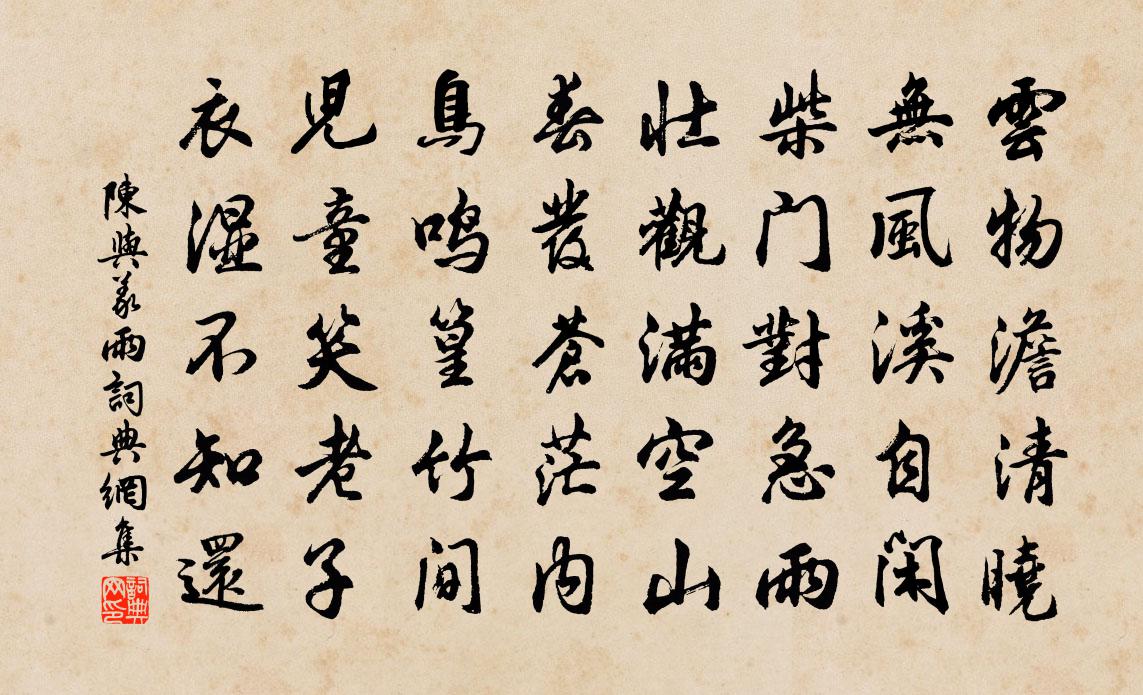 雲物澹清曉
無風溪自閑
柴门對急雨
壯觀滿空山
春發蒼茫内
鳥鳴篁竹間
児童笑老子
衣湿不知還
陳與義雨詞典網集
詞典网印